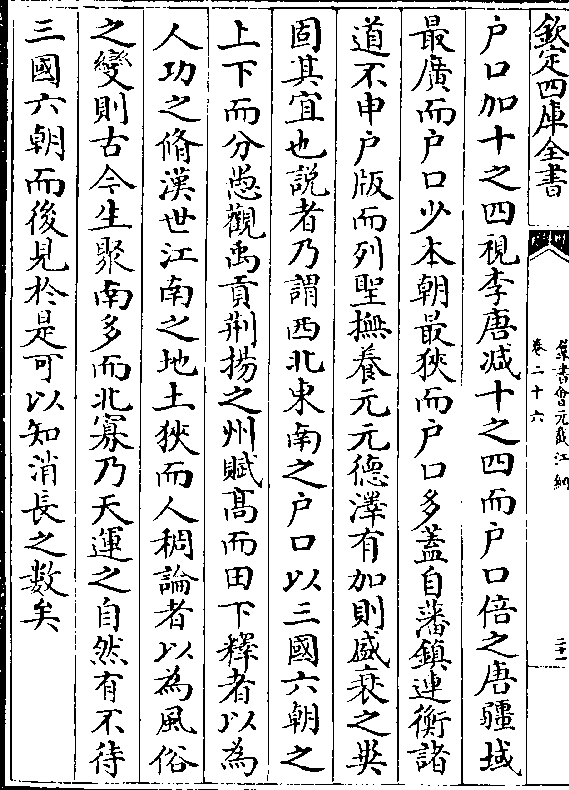 欽定四庫全書
羣書會元截江網
卷二十六
二十一
户口加十之四視李唐减十之四而户口倍之唐疆域
最廣而户口少本朝最狹而户口多蓋自藩鎮連衡諸
道不申户版而列聖撫養元元德澤有加則盛衰之異
固其宜也説者乃謂西北東南之户口以三國六朝之
上下而分愚觀禹貢荆揚之州賦髙而田下釋者以為
人功之脩漢世江南之地土狹而人稠論者以為風俗
之變則古今生聚南多而北寡乃天運之自然有不待
三國六朝而後見於是可以知消長之數矣